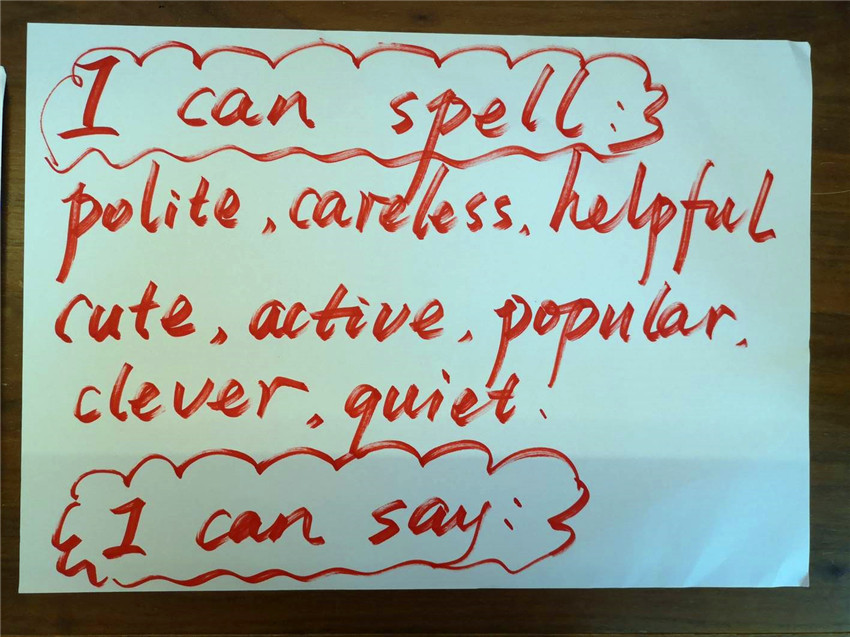 I can spell:
polite, careless, helpful
cute, active, popular,
clever, quiet.
I can say: